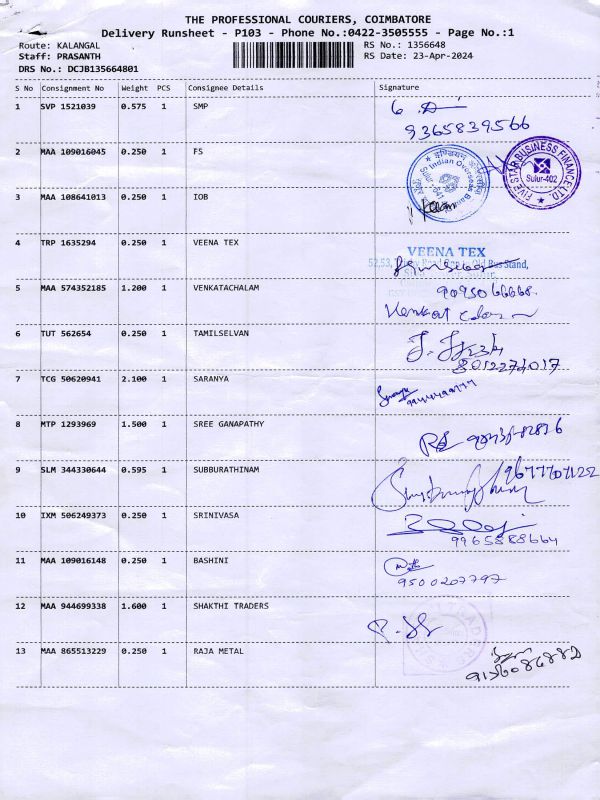 THE PROFESSIONAL COURIERS, COIMBATORE
Delivery Runsheet - P103 - Phone No.:0422-3505555 - Page No.:1
Route: KALANGAL RS No.: 1356648
Staff: PRASANTH RS Date: 23-Apr-2024
DRS No.: DCJB135664801
S No Consignment No Weight PCS Consignee Details Signature
1 SVP 1521039 0.575 1 SMP
9365839566
2 MAA 109016045 0.250 1 FS
Indian Overseas Bank
FIVE STAR BUSINESS FINANCE LTD.
Sulur-402
3 MAA 108641013 0.250 1 IOB
4 TRP 1635294 0.250 1 VEENA TEX
VEENA TEX
Old Bus Stand,
5 MAA 574352185 1.200 1 VENKATACHALAM 9095066668.
6 TUT 562654 0.250 1 TAMILSELVAN
8012274017
7 TCG 50620941 2.100 1 SARANYA
8 MTP 1293969 1.500 1 SREE GANAPATHY
9 SLM 344330644 0.595 1 SUBBURATHINAM
10 IXM 506249373 0.250 1 SRINIVASA
9965888664
11 MAA 109016148 0.250 1 BASHINI
9500207797
12 MAA 944699338 1.600 1 SHAKTHI TRADERS
13 MAA 865513229 0.250 1 RAJA METAL